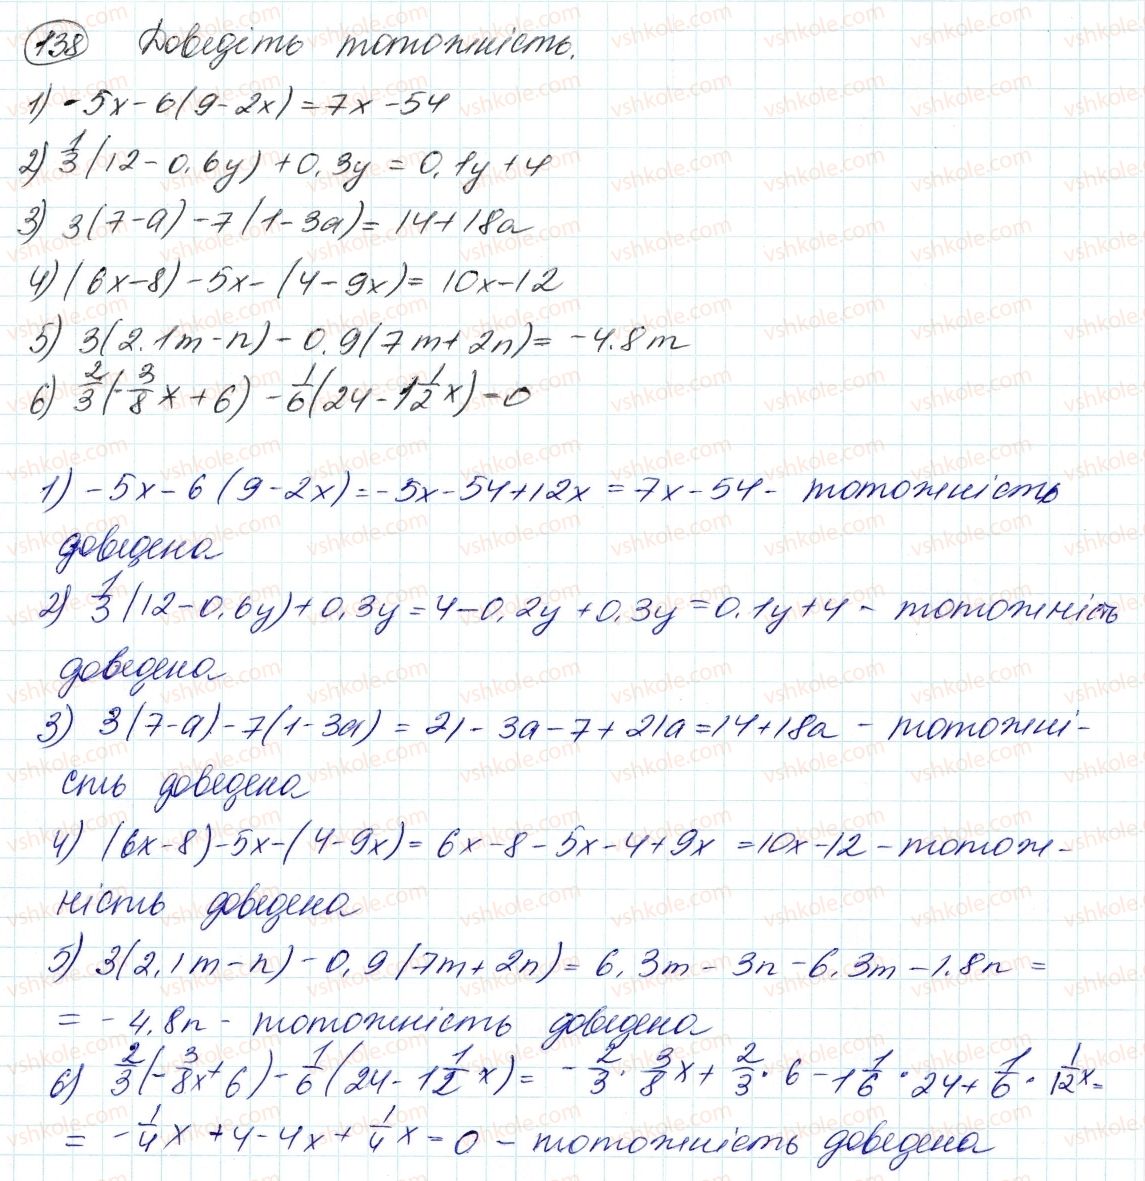 138 Доведіть тотожність.
1) -5x-6(9-2x)=7x-54
2) 1/3(12-0,6y)+0,3y=0,1y+4
3) 3(7-a)-7(1-3a)=14+18a
4) (6x-8)-5x-(4-9x)=10x-12
5) 3(2.1m-n)-0,9(7m+2n)=-4.8m
6) 2/3(-3/8x+6)-1/6(24-1 1/2x)-0
1) -5x-6(9-2x)=-5x-54+12x=7x-54- тотожність
доведена
2) 1/3(12-0,6y)+0,3y=4-0,2y+0,3y=0.1y+4- тотожність
доведена
3) 3(7-a)-7(1-3a)=21-3a-7+21a=14+18a - тотожні-
сть доведена
4) (6x-8)-5x-(4-9x)=6x-8-5x-4+9x=10x-12-тотож-
ність доведена
5) 3(2,1m-n)-0,9(7m+2n)=6,3m-3n-6,3m-1.8n=
=-4,8n- тотожність доведена
6) 2/3(-3/8x+6)-1/6(24-1 1/2x)=-2/3·3/8x+2/3·6-1 1/6·24+1/6·1 1/2x=
=-1/4x+4-4x+1/4x=0 - тотожність доведена